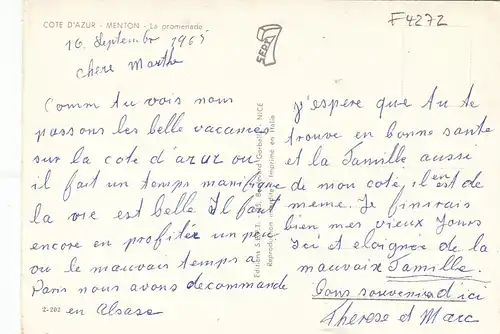 COTE D'AZUR - MENTON - La promenade
F4272
16 Septembre 1965
chere Marthe
SEPT
Comm tu vois nous
passons les belle vacances
sur la cote d'azur ou
il fait un temps manifique
la vie est belle Il faut
encore en profitée un peu
ou le mauvais temps a
Paris nous avons decommande
en Alsace
2-202
NICE
Reproduction Imprimé en Italie
j'espère que tu te
trouve en bonne sante
et la Famille aussi
de mon coté, il en est de
meme. Je finirais
bien mes vieux Jours
Ici et eloignée de la
mauvaix Famille.
Bons souvenirs d'ici
Therese et Marc